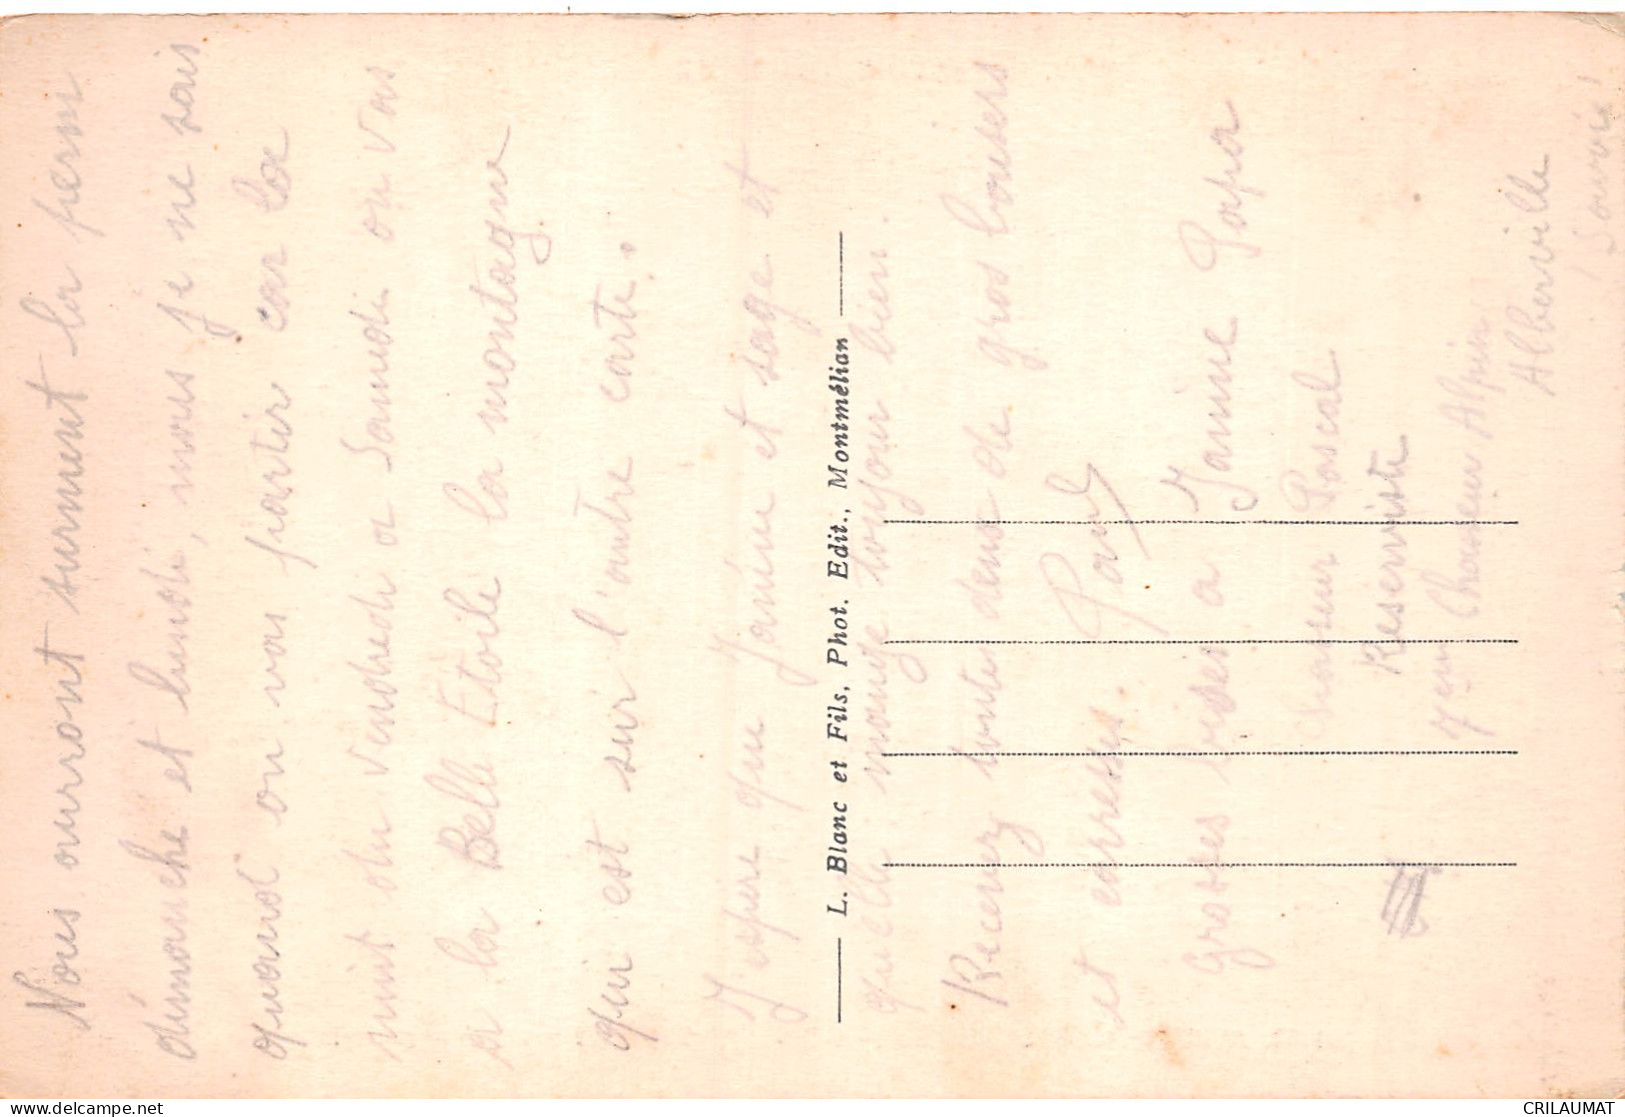 Nous ourront surment la perm
dimanche et lundi, mais je ne sais
quand on vas partir car la
nuit du Vendredi a Samedi on vas
a la Belle Etoile la montagne
qui est sur l'autre carte.
J'espere que Janine et sage et
quelle mange toujour bien.
Recevez toutes deux de gros baisers
et carresses. Paul
Grosses bises a Janine Papa
Chasseur Pascal
Réserviste
7eme Chasseur Alpin
Alberville
(Savoie)
L. Blanc et Fils, Phot. Edit., Montmélian
CRILAUMAT